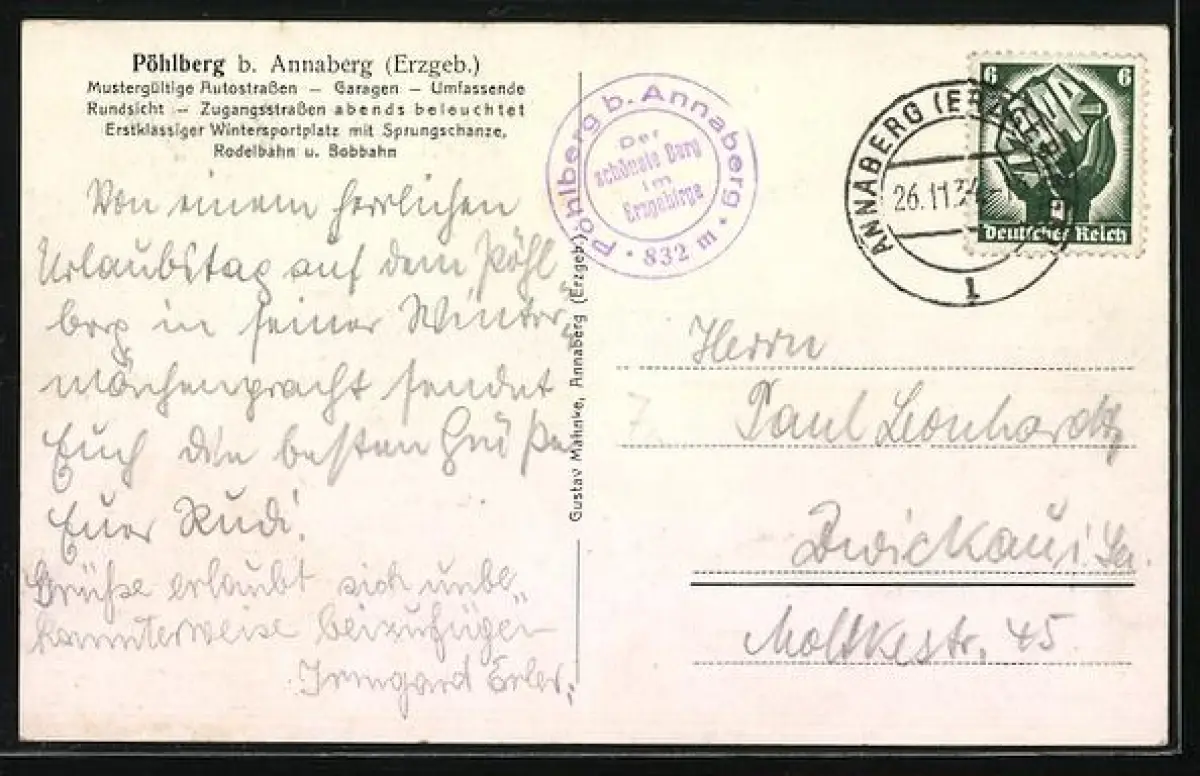 Pöhlberg b. Annaberg (Erzgeb.)
Mustergültige Autostraßen – Garagen – Umfassende
Rundsicht – Zugangsstraßen abends beleuchtet
Erstklassiger Wintersportplatz mit Sprungschanze,
Rodelbahn u. Bobbahn
Von einem herrlichen
Urlaubstag auf dem Pöhl
berg in seiner Winter
märchenpracht sendet
Euch die besten Grüße
Euer Rudi!
Grüße erlaubt sich unbe
kannterweise beizufügen
Irmgard Erler.
Gustav Mahnke, Annaberg (Erzgeb.)
Pöhlberg b. Annaberg
Der
schönste Berg
im
Erzgebirge
832 m
ANNABERG (ERZGEB)
26.11.34
1
6 6
SAAR
Deutsches Reich
Herrn
Paul Leonhardt
Zwickau i. Sa.
Moltkestr. 45